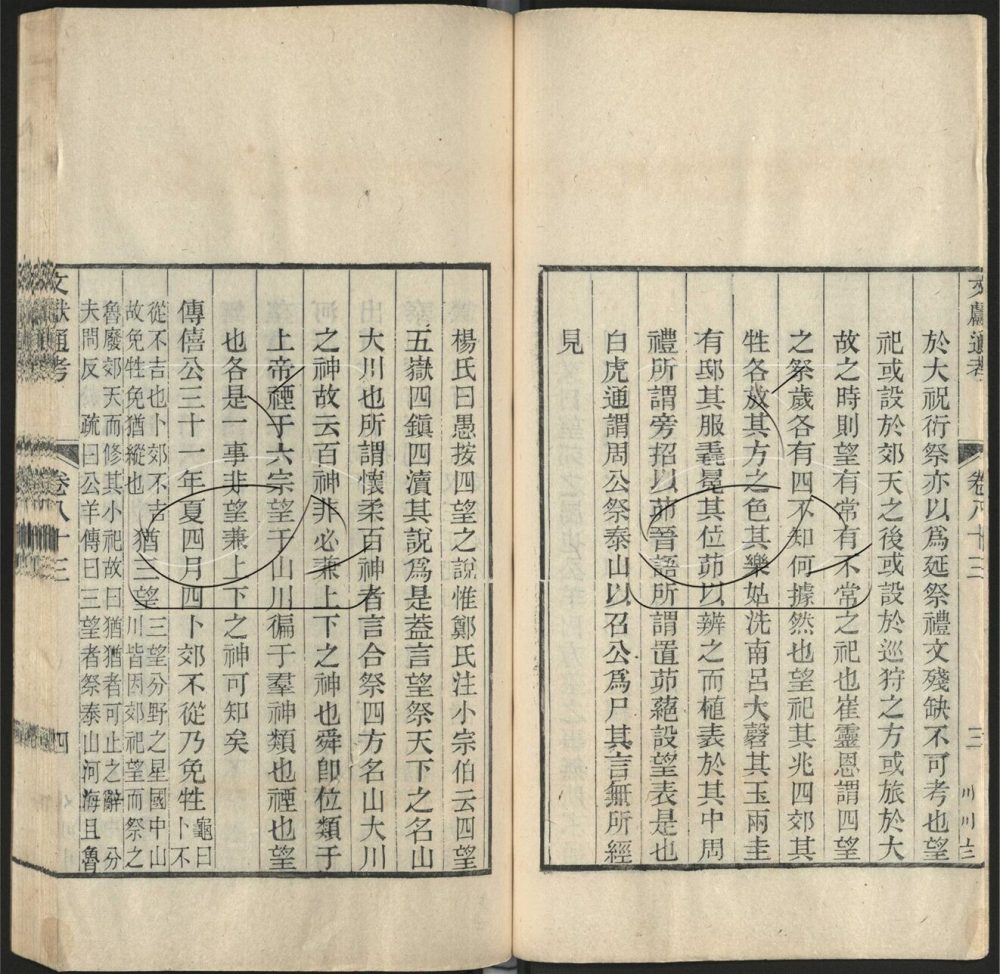 於大祝衍祭亦以爲延祭禮文殘缺不可考也望
祀或設於郊天之後或設於巡狩之方或旅於大
故之時則望有常有不常之祀也崔靈恩謂四望
之祭歲各有四不知何據然也望祀其兆四郊其
牲各放其方之色其樂姑洗南呂大磬其玉兩圭
有邸其服毳冕其位茆以辨之而植表於其中周
禮所謂旁招以茆晉語所謂置茆蕝設望表是也
白虎通謂周公祭泰山以召公爲尸其言無所經
見
文獻通考
卷八十三
三
楊氏曰愚按四望之說惟鄭氏注小宗伯云四望
五嶽四鎭四瀆其說爲是葢言望祭天下之名山
大川也所謂懷柔百神者言合祭四方名山大川
之神故云百神非必兼上下之神也舜卽位類于
上帝禋于六宗望于山川徧于羣神類也禋也望
也各是一事非望兼上下之神可知矣
傳僖公三十一年夏四月四卜郊不從乃免牲龜曰卜不
從不吉也卜郊不吉故免牲免猶縱也猶三望三望分野之星國中山川皆因郊祀望而祭之
魯廢郊天而修其小祀故曰猶猶者可止之辭
夫問反疏曰公羊傳曰三望者祭泰山河海且魯
分
文獻通考
卷八十三
四